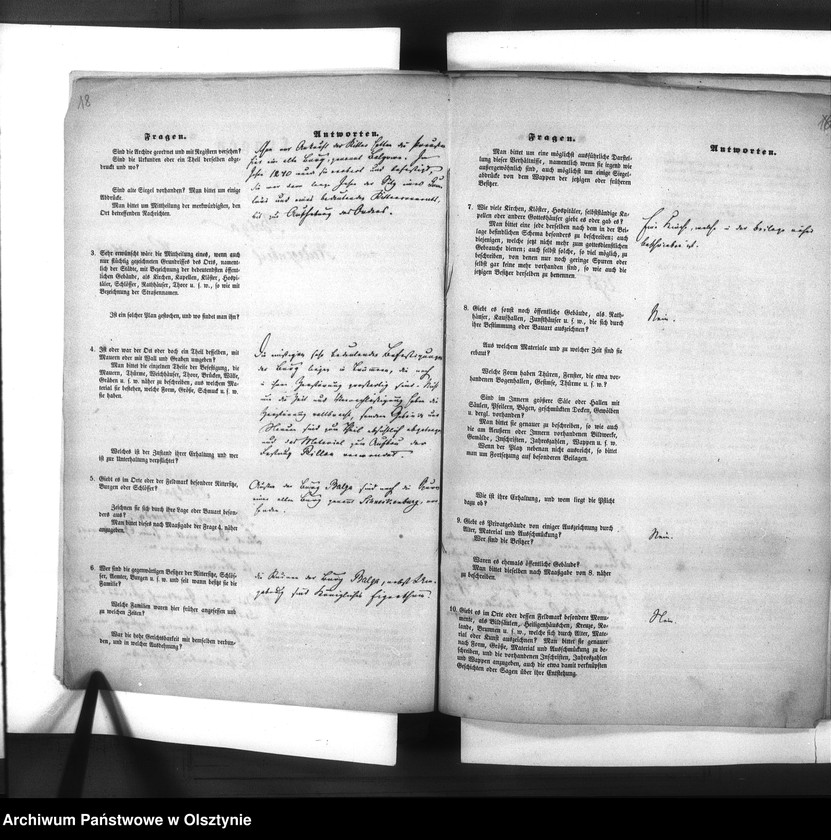 18
Fragen.
Antworten.
Sind die Archive geordnet und mit Registern versehen?
Sind die Urkunden oder ein Theil derselben abge-
druckt und wo?
Sind alte Siegel vorhanden? Man bittet um einige
Abdrücke.
Man bittet um Mittheilung der merkwürdigsten, den
Ort betreffenden Nachrichten.
vor Ankunft der Ritter
eine alte Burg, genannt
Jahre 1240 und
bis zur Aufhebung des Ordens.
3. Sehr erwünscht wäre die Mittheilung eines, wenn auch
nur flüchtig gezeichneten Grundrisses des Orts, nament-
lich der Städte, mit Bezeichnung der bedeutendsten öffent-
lichen Gebäude, als Kirchen, Kapellen, Klöster, Hospi-
täler, Schlösser, Rathhäuser, Thore u. s. w., so wie mit
Bezeichnung der Straßennamen.
Ist ein solcher Plan gestochen, und wo findet man ihn?
4. Ist oder war der Ort oder doch ein Theil desselben, mit
Mauern oder mit Wall und Graben umgeben?
Man bittet die einzelnen Theile der Befestigung, die
Mauern, Thürme, Weichhäuser, Thore, Brücken, Wälle,
Gräben u. s. w. näher zu beschreiben, aus welchem Ma-
terial sie bestehen, welche Form, Größe, Schmuck u. s. w.
sie haben.
Die
der Burg liegen in Trümmern, die noch
in ihrer Zerstörung
die Zeit
Zerstörung vollbracht, sondern
Steine sind zum Theil absichtlich
und das Material zum Aufbau der
Festung Pillau verwendet.
Welches ist der Zustand ihrer Erhaltung und wer
ist zur Unterhaltung verpflichtet?
5. Giebt es im Orte oder der Feldmark besondere Rittersitze,
Burgen oder Schlösser?
Zeichnen sie sich durch ihre Lage oder Bauart beson-
ders aus?
Man bittet dieses nach Maaßgabe der Frage 4. näher
anzugeben.
Außer der Burg Balga sind noch die
einer alten Burg genannt
6. Wer sind die gegenwärtigen Besitzer der Rittersitze, Schlös-
ser, Aemter, Burgen u. s. w. und seit wann besitzt sie die
Familie?
Welche Familien waren hier früher angesessen und
zu welchen Zeiten?
War die hohe Gerichtsbarkeit mit denselben verbun-
den, und in welcher Ausdehnung?
die Ruinen der Burg Balga, nebst Um-
gebung sind Königliches Eigenthum.
Fragen.
Antworten.
Man bittet um eine möglichst ausführliche Darstel-
lung dieser Verhältnisse, namentlich wenn sie irgend wie
außergewöhnlich sind, auch möglichst um einige Siegel-
abdrücke von dem Wappen der jetzigen oder früheren
Besitzer.
7. Wie viele Kirchen, Klöster, Hospitäler, selbstständige Ka-
pellen oder andere Gotteshäuser giebt es oder gab es?
Man bittet eine jede derselben nach dem in der Bei-
lage befindlichen Schema besonders zu beschreiben; auch
diejenigen, welche jetzt nicht mehr zum gottesdienstlichen
Gebrauche dienen; auch selbst solche, so viel möglich, zu
beschreiben, von denen nur noch geringe Spuren oder
selbst gar keine mehr vorhanden sind, so wie auch die
jetzigen Besitzer derselben zu benennen.
Eine Kirche, welche in der Beilage näher
beschrieben ist.
8. Giebt es sonst noch öffentliche Gebäude, als Rath-
häuser, Kaufhallen, Zunfthäuser u. s. w., die sich durch
ihre Bestimmung oder Bauart auszeichnen?
Nein.
Aus welchem Materiale und zu welcher Zeit sind sie
erbaut?
Welche Form haben Thüren, Fenster, die etwa vor-
handenen Bogenhallen, Gesimse, Thürme u. s. w.?
Sind im Innern größere Säle oder Hallen mit
Säulen, Pfeilern, Bögen, geschmückten Decken, Gewölben
u. dergl. vorhanden?
Man bittet sie genauer zu beschreiben, so wie auch
die am Aeußern oder Innern vorhandenen Bildwerke,
Gemälde, Inschriften, Jahreszahlen, Wappen u. s. w.
Wenn der Platz nebenan nicht ausreicht, so bittet
man um Fortsetzung auf besonderen Beilagen.
Wie ist ihre Erhaltung, und wem liegt die Pflicht
dazu ob?
9. Giebt es Privatgebäude von einiger Auszeichnung durch
Alter, Material und Ausschmückung?
Wer sind die Besitzer?
Nein.
Waren es ehemals öffentliche Gebäude?
Man bittet dieselben nach Maaßgabe von 8. näher
zu beschreiben.
10. Giebt es im Orte oder dessen Feldmark besondere Monu-
mente, als Bildsäulen, Heiligenhäuschen, Kreuze, Ro-
lande, Brunnen u. s. w., welche sich durch Alter, Mate-
rial oder Kunst auszeichnen? Man bittet sie genauer
nach Form, Größe, Material und Ausschmückung zu be-
schreiben, und die vorhandenen Inschriften, Jahreszahlen
und Wappen anzugeben, auch die etwa damit verknüpften
Geschichten oder Sagen über ihre Entstehung.
Nein.
Archiwum Państwowe w Olsztynie